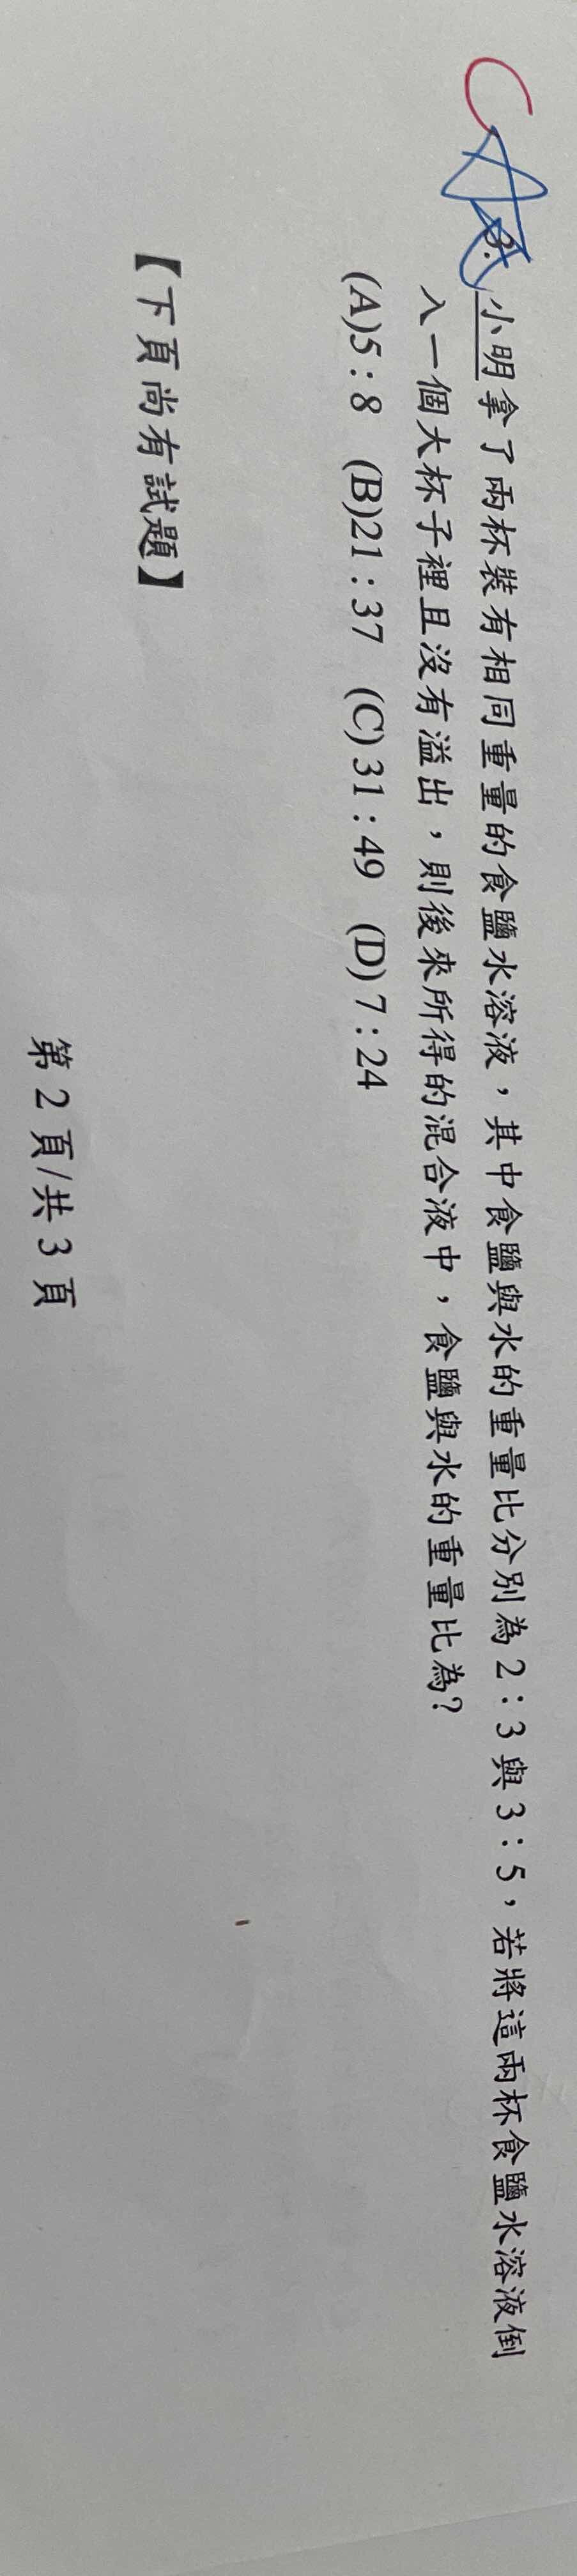 C A
3. 小明拿了兩杯裝有相同重量的食鹽水溶液，其中食鹽與水的重量比分別為 2：3 與 3：5，若將這兩杯食鹽水溶液倒
入一個大杯子裡且沒有溢出，則後來所得的混合液中，食鹽與水的重量比為?
(A)5：8 (B)21：37 (C) 31：49 (D) 7：24
【下頁尚有試題】
第 2 頁/共 3 頁